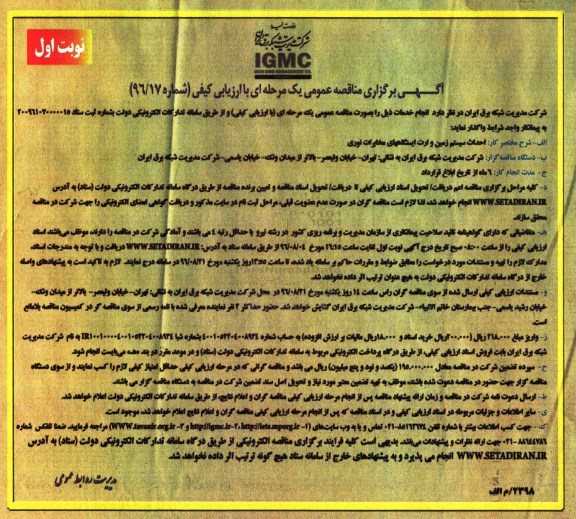 نوبت اول
شرکت مدیریت شبکه برق ایران
IGMC
آگهی برگزاری مناقصه عمومی یک مرحله ای با ارزیابی کیفی (شماره ۹۶/۱۷)
شرکت مدیریت شبکه برق ایران در نظر دارد انجام خدمات ذیل را بصورت مناقصه عمومی یک مرحله ای (با ارزیابی کیفی) و از طریق سامانه تدارکات الکترونیکی دولت بشماره ثبت ستاد ۲۰۰۹۶۱۰۷۰۰۰۰۰۱۵
به پیمانکار واجد شرایط واگذار نماید:
الف- شرح مختصر کار: احداث سیستم زمین و ارت ایستگاههای مخابرات نوری
ب- دستگاه مناقصه گزار: شرکت مدیریت شبکه برق ایران به نشانی: تهران- خیابان ولیعصر- بالاتر از میدان ونک- خیابان یاسمی- شرکت مدیریت شبکه برق ایران
ج- مدت انجام کار: ۶ ماه از تاریخ ابلاغ قرارداد
د- کلیه مراحل برگزاری مناقصه اعم از دریافت/ تحویل اسناد ارزیابی کیفی تا دریافت/ تحویل اسناد مناقصه و تعیین برنده مناقصه از طریق درگاه سامانه تدارکات الکترونیکی دولت (ستاد) به آدرس
WWW.SETADIRAN.IR انجام خواهد شد، لذا لازم است مناقصه گران در صورت عدم عضویت قبلی، مراحل ثبت نام در سایت مذکور و دریافت گواهی امضای الکترونیکی را جهت شرکت در مناقصه
محقق سازند.
ه- متقاضیانی که دارای گواهینامه تائید صلاحیت پیمانکاری از سازمان مدیریت و برنامه ریزی کشور در رشته نیرو با حداقل رتبه ۴ می باشند و آمادگی شرکت در مناقصه را دارند، موظف می‌باشند اسناد
ارزیابی کیفی را از ساعت ۰۸:۰۰ صبح تاریخ درج آگهی نوبت اول لغایت ساعت ۱۶:۱۵ مورخ ۹۶/۰۸/۰۴ از طریق سامانه ستاد به آدرس: WWW.SETADIRAN.IR دریافت و با توجه به مندرجات اسناد،
مدارک لازم را تهیه و مستندات مورد درخواست را مطابق ضوابط و مقررات حاکم بر سامانه یاد شده تا ساعت ۱۳:۵۵ روز یکشنبه مورخ ۹۶/۰۸/۲۱ در سامانه درج نمایند. لازم به تاکید است به پیشنهادهای واصله
خارج از درگاه سامانه تدارکات الکترونیکی دولت به هیچ عنوان ترتیب اثر داده نخواهد شد.
و- مستندات ارزیابی کیفی ارسال شده از سوی مناقصه گران راس ساعت ۱۴ روز یکشنبه مورخ ۹۶/۰۸/۲۱ در محل شرکت مدیریت شبکه برق ایران به نشانی: تهران- خیابان ولیعصر- بالاتر از میدان ونک-
خیابان رشید یاسمی- جنب بیمارستان خاتم الانبیاء- شرکت مدیریت شبکه برق ایران گشایش خواهد شد. حضور حداکثر ۲ نفر نماینده معرفی شده با نامه رسمی از سوی مناقصه گر در کمیسیون مناقصه بلامانع
است.
ز- واریز مبلغ ۲۱۸.۰۰۰ ریال (۲۰۰.۰۰۰ ریال خرید اسناد و ۱۸.۰۰۰ ریال مالیات بر ارزش افزوده) به حساب شماره ۴۰۰۱۰۵۲۲۰۴۰۰۸۹۳۴ بشماره شبا به نام شرکت مدیریت
شبکه برق ایران بابت فروش اسناد ارزیابی کیفی، از طریق درگاه پرداخت الکترونیکی مربوط به سامانه تدارکات الکترونیکی دولت (ستاد) و در موعد مقرر در بند ه می‌بایست انجام شود.
ح- سپرده تضمین شرکت در مناقصه معادل ۱۹۵.۰۰۰.۰۰۰ (یکصد و نود و پنج میلیون) ریال می باشد و مناقصه گرانی که در مرحله ارزیابی کیفی حداقل امتیاز کیفی لازم را کسب نمایند و از سوی دستگاه
مناقصه گزار جهت حضور در مناقصه دعوت شده باشند، موظف به تهیه تضمین معتبر مورد نیاز و تحویل اصل سند تضمین شرکت در مناقصه به دستگاه مناقصه گزار می باشند.
ط- ارسال دعوت نامه شرکت در مناقصه و زمان ارائه پیشنهاد مناقصه پس از انجام مرحله ارزیابی کیفی مناقصه گران و اعلام نتایج، از طریق سامانه تدارکات الکترونیکی دولت اعلام خواهد شد.
ی- سایر اطلاعات و جزئیات مربوطه در اسناد ارزیابی کیفی و در اسناد مناقصه که پس از انجام مرحله ارزیابی کیفی مناقصه گران و اعلام نتایج اعلام خواهد شد، موجود است.
ک- جهت کسب اطلاعات بیشتر با شماره تلفن تماس و یا به وب سایت های (۱- http://iets.mporg.ir ۲- http://igmc.ir ۳- WWW.tavanir.org.ir) مراجعه فرمایید. ضمنا تلفکس شماره
۰۲۱-۸۸۶۴۴۷۸۶ جهت ارائه نظرات و پیشنهادات می‌باشد. بدیهی است کلیه فرآیند برگزاری مناقصه الکترونیکی از طریق درگاه سامانه تدارکات الکترونیکی دولت (ستاد) به آدرس
WWW.SETADIRAN.IR انجام می پذیرد و به پیشنهادهای خارج از سامانه ستاد هیچ گونه ترتیب اثر داده نخواهد شد.
مدیریت روابط عمومی
۲۳۹۸/م الف